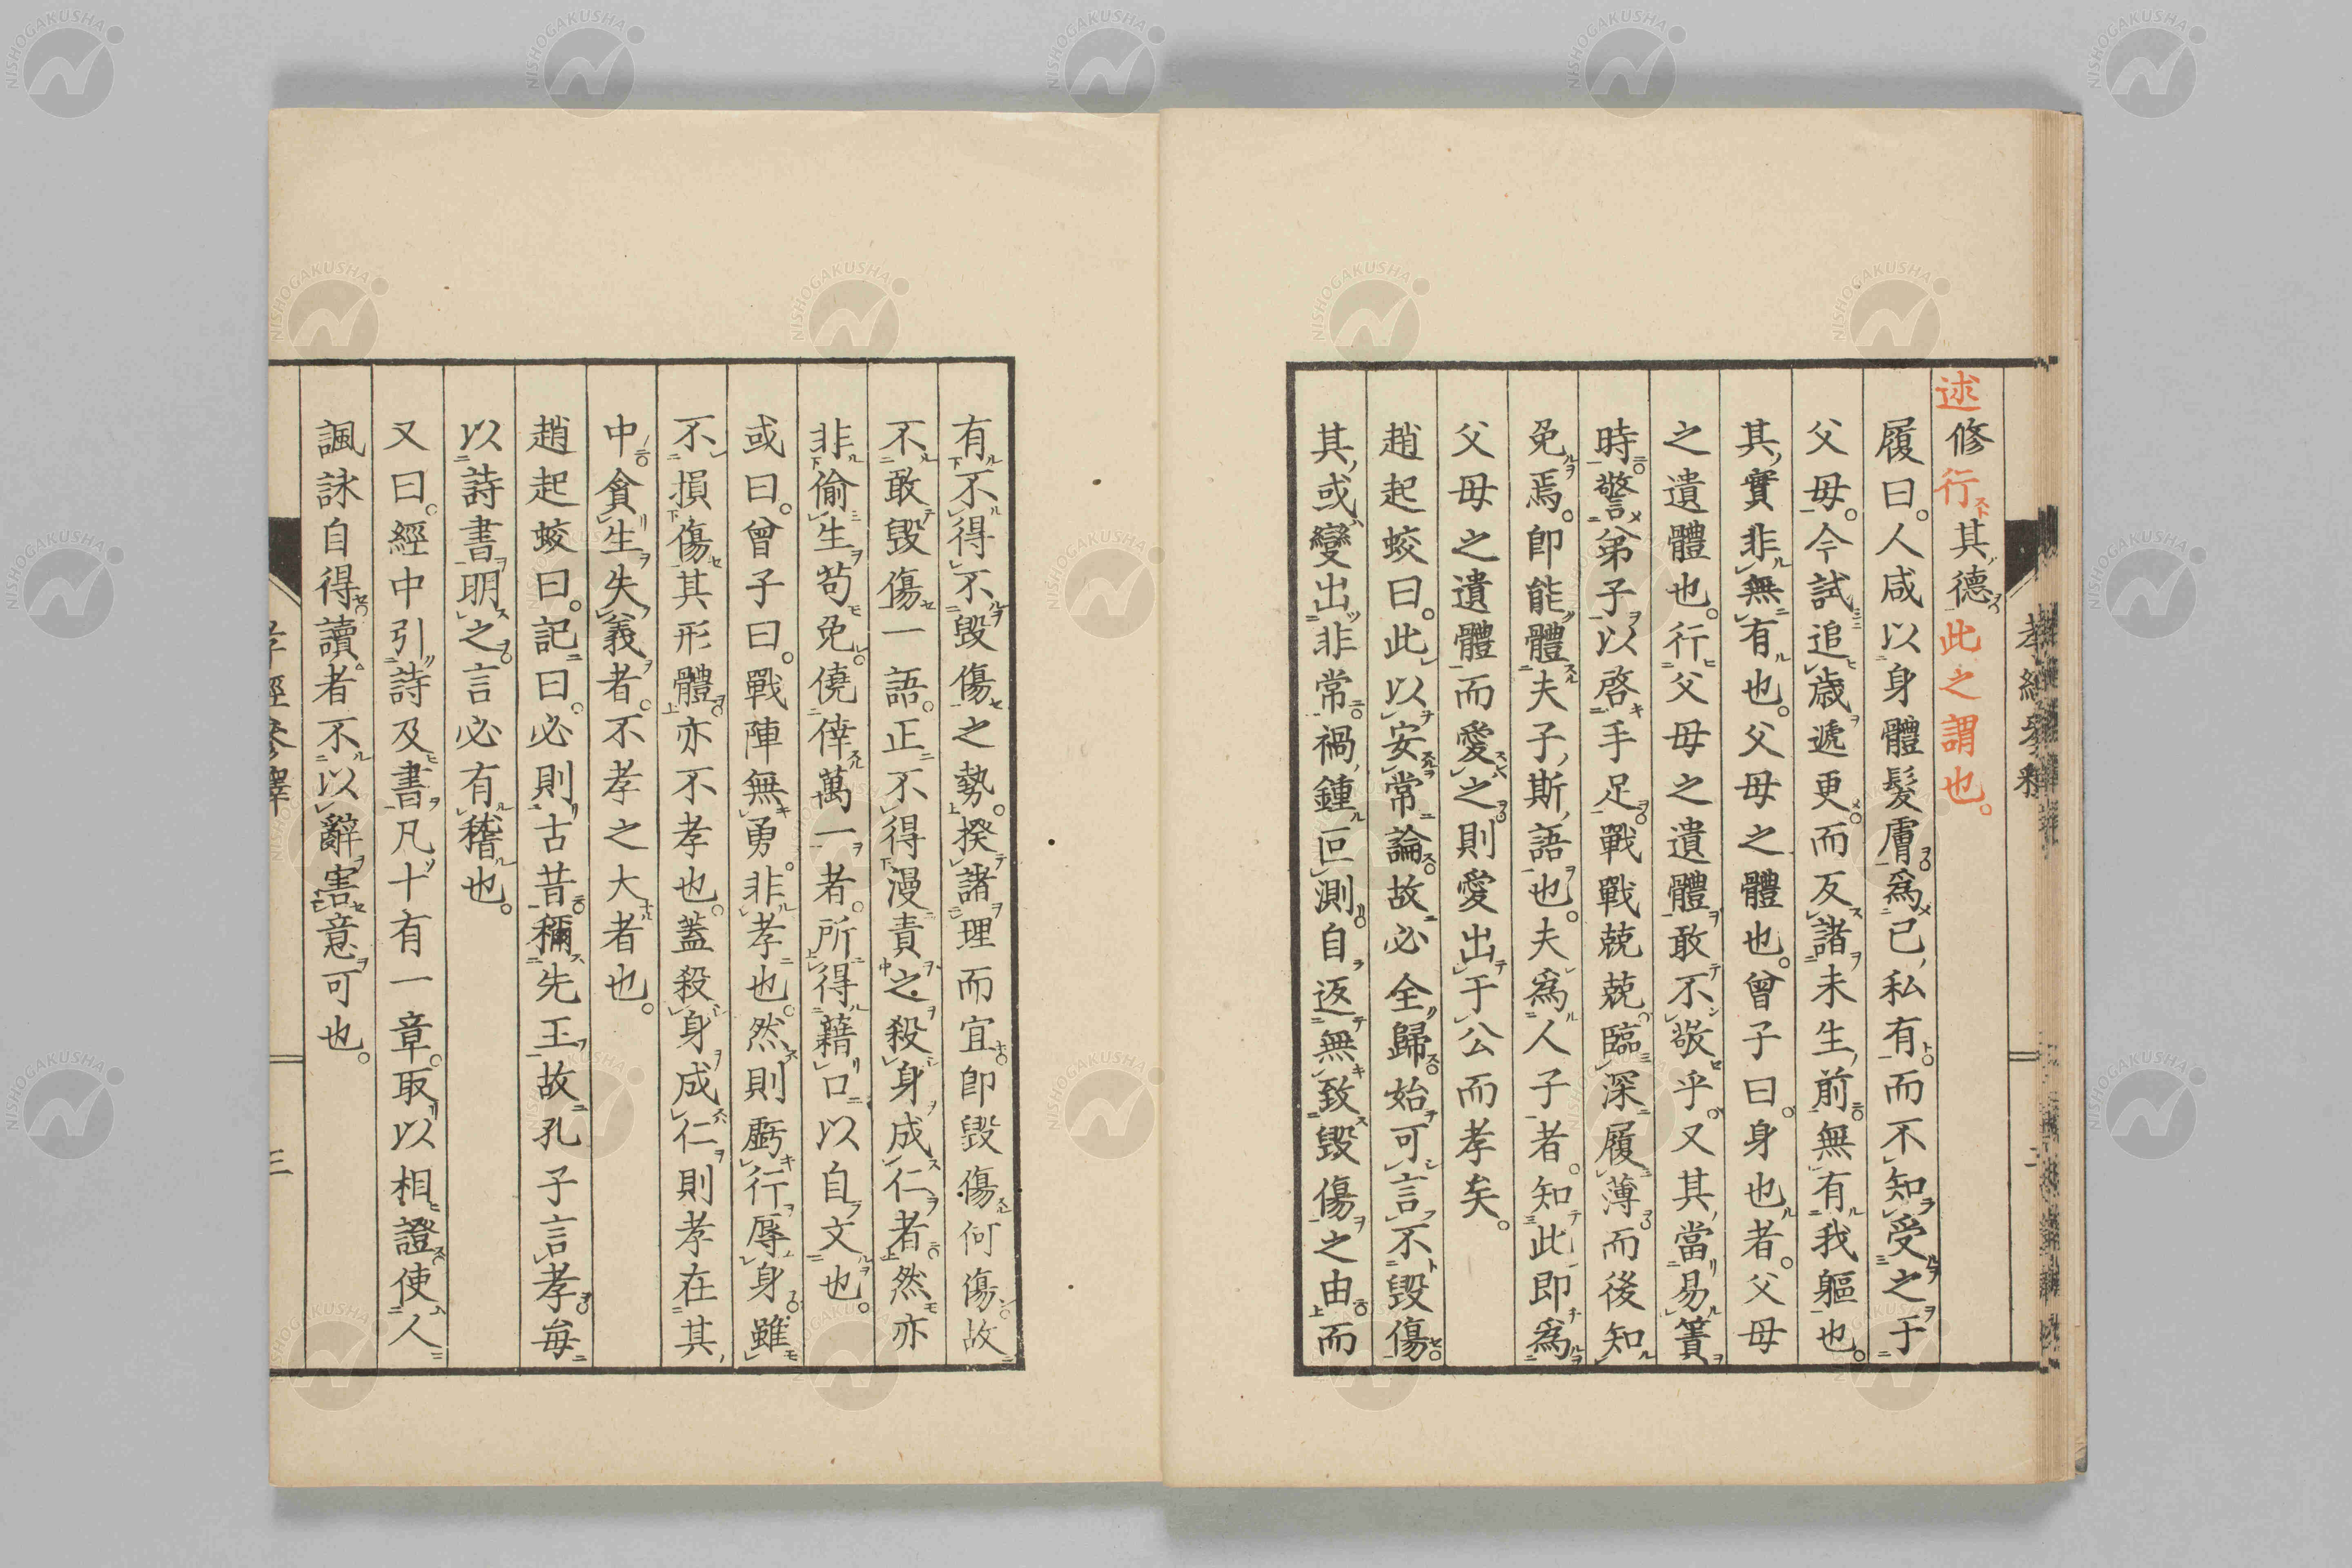 述修行其德此之謂也。
履曰。人咸以身體髮膚爲己私有。而不知受之于
父母。今試追歲遞更。而反諸未生前。無有我軀也。
其實非無有也。父母之體也。曾子曰。身也者。父母
之遺體也。行父母之遺體。敢不敬乎。又其當易簀
時。警弟子。以啓手足。戰戰兢兢。臨深履薄。而後知
免焉。即能體夫子斯語也。夫爲人子者。知此即爲
父母之遺體。而愛之。則愛出于公而孝矣。
趙起蛟曰。此以安常論。故必全歸。始可言不毀傷。
其或變出非常。禍鍾叵測。自返無致毀傷之由。而
有不得不毀傷之勢。揆諸理而宜。即毀傷何傷。故
不敢毀傷一語。正不得漫責之殺身成仁者。然亦
非偷生苟免。僥倖萬一者。所得藉口以自文也。
或曰。曾子曰。戰陣無勇。非孝也。然則虧行辱身。雖
不損傷其形體。亦不孝也。蓋殺身成仁。則孝在其
中。貪生失義者。不孝之大者也。
趙起蛟曰。記曰。必則古昔。稱先王。故孔子言孝。每
以詩書明之。言必有稽也。
又曰。經中引詩及書。凡十有一章。取以相證。使人
諷詠自得。讀者不以辭害意可也。
孝經參釋
三
NISHOGAKUSHA